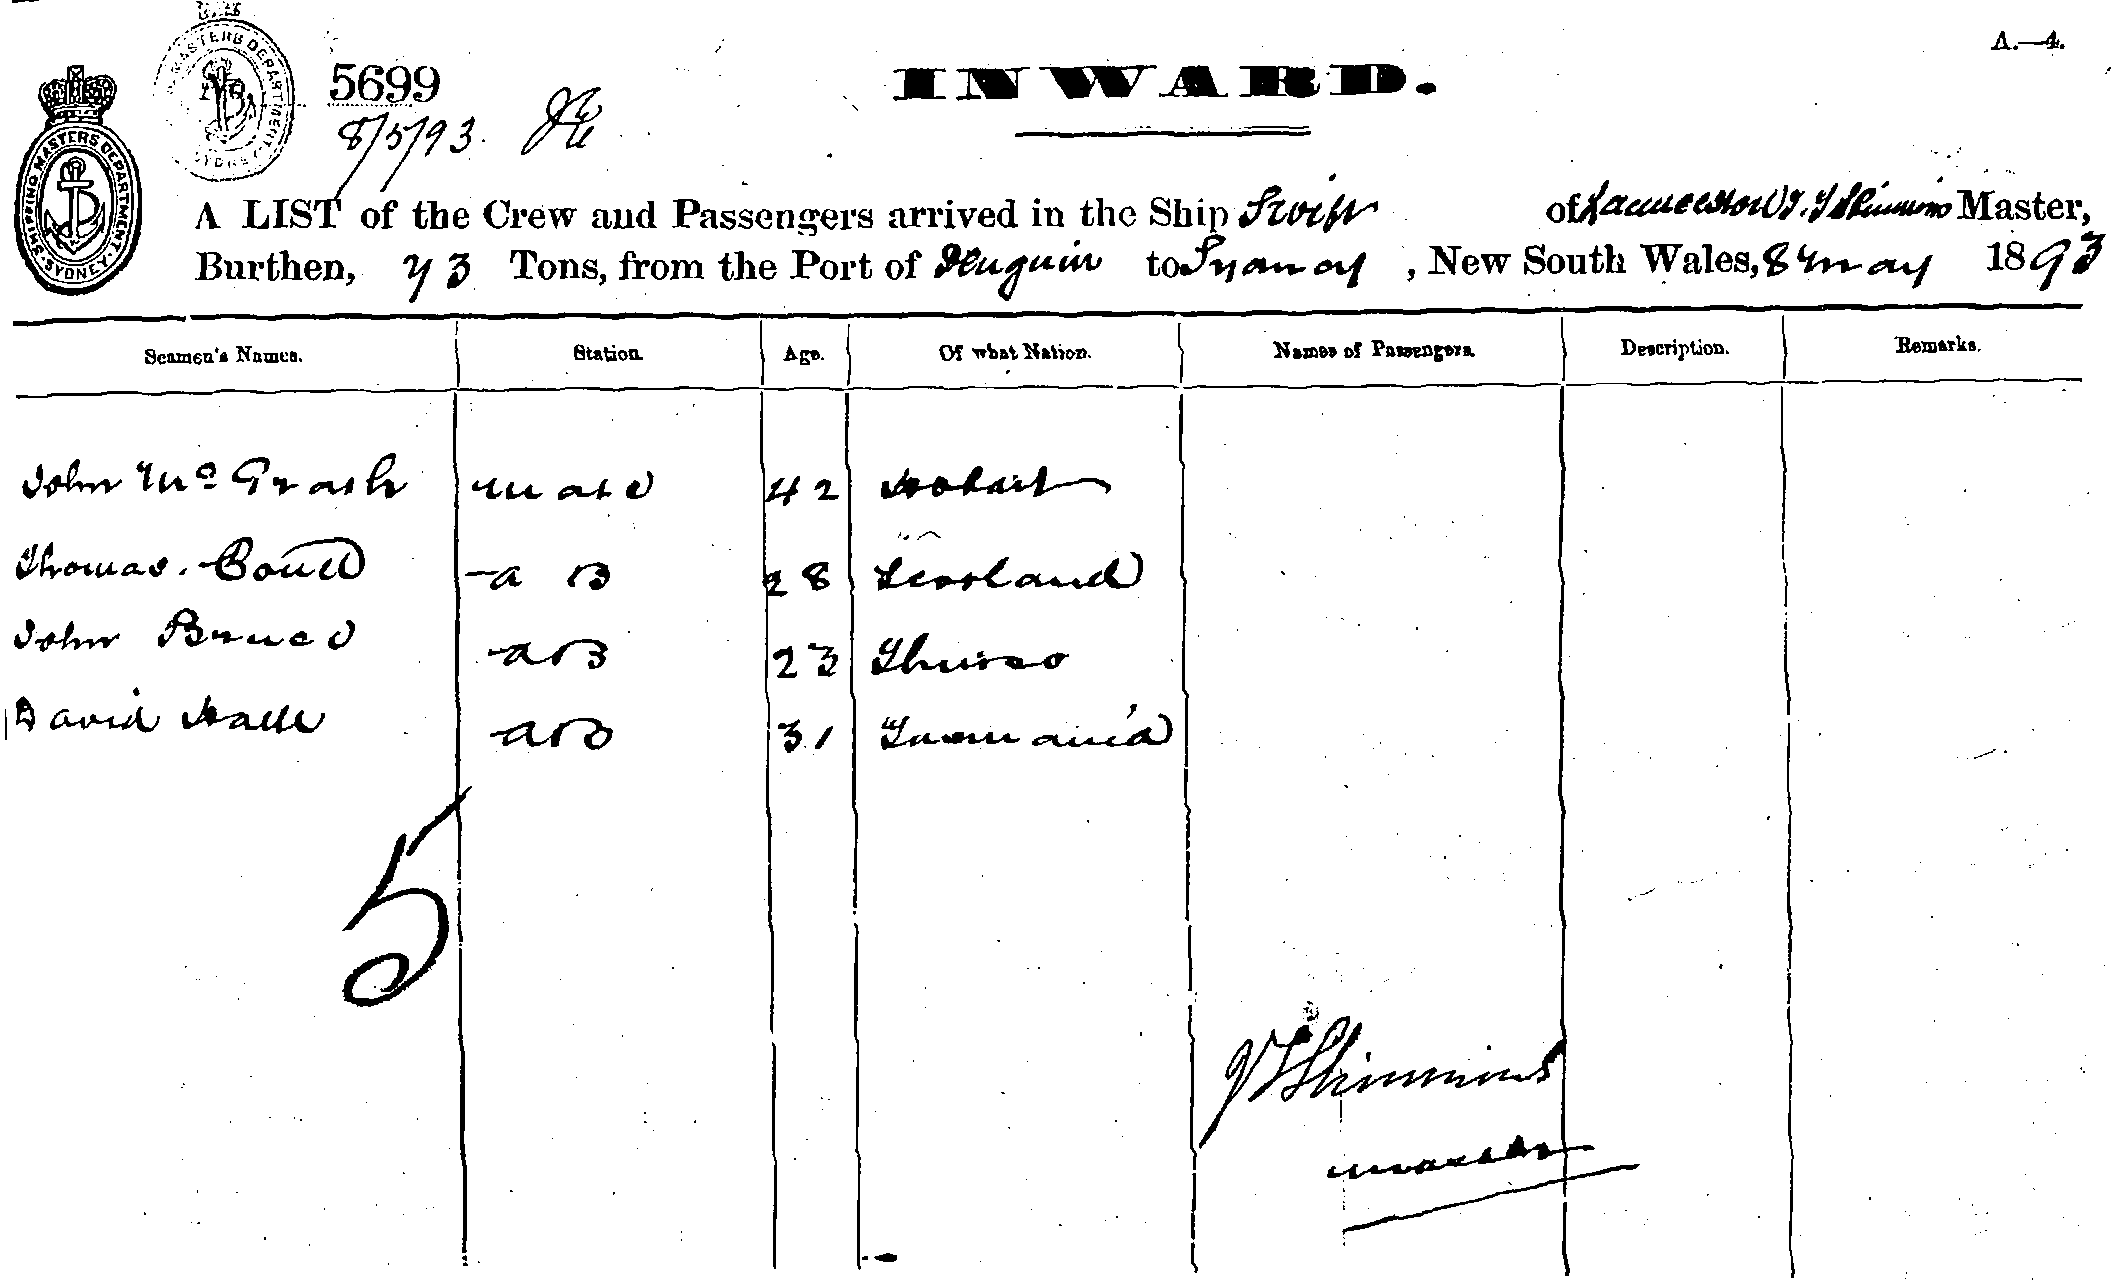 A.—4.
5699
INWARD.
8/5/93.
SHIPPING MASTERS DEPARTMENT SYDNEY
A LIST of the Crew and Passengers arrived in the Ship Swift of Launceston J. T. Skimmins Master,
Burthen, 73 Tons, from the Port of Penguin to Sydney, New South Wales, 8 May 1893
Seamen's Names. Station. Age. Of what Nation. Names of Passengers. Description. Remarks.
John McGrath mate 42 Hobart
Thomas a B 28 Scotland
John Bruce a B 23 Thurso
David Hall a B 31 Tasmania
5
J T Skimmins
master